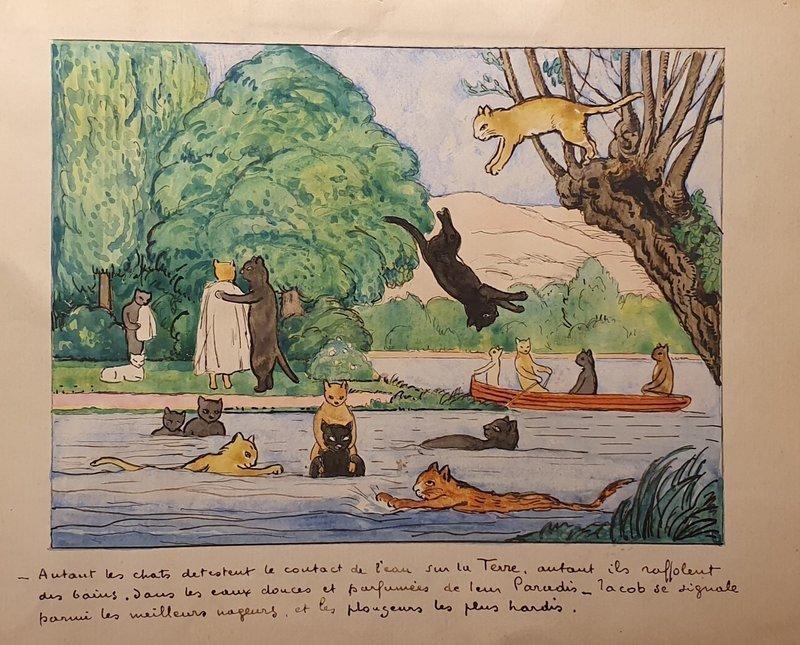 – Autant les chats detestent le contact de l'eau sur la Terre, autant ils raffolent
des bains, dans les eaux douces et parfumées de leur Paradis – Jacob se signale
parmi les meilleurs nageurs, et les plongeurs les plus hardis.